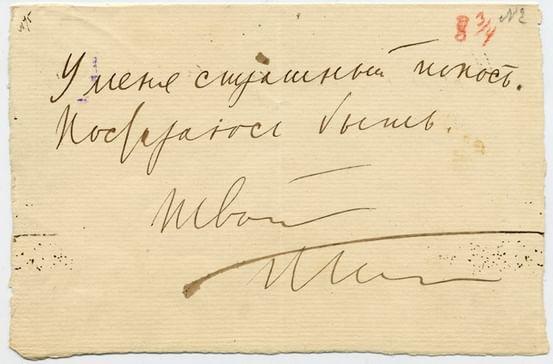 №5
8 3/4
№2
У меня страшный поносъ.
Постараюсь быть.
Твой